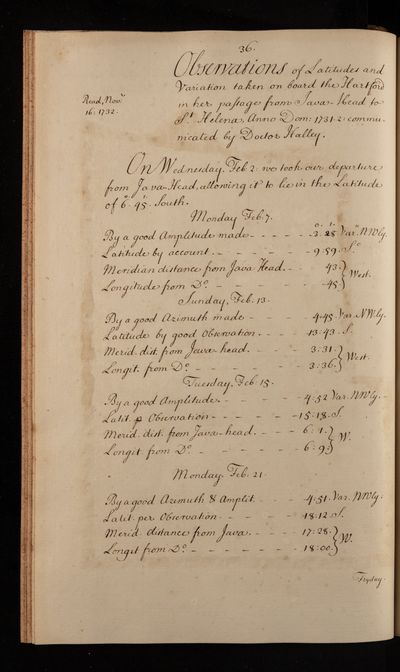 36.
Observations of Latitudes and
Variation taken on board the Hartford
Read, Novr. 16. 1732.
in her passage from Java-Head to
St. Helena, Anno Dom: 1731-2 commu-
nicated by Doctor Halley.
On Wednesday, Feb. 2. we took our departure
from Java-Head, allowing it to lie in the Latitude
of 6°. 45'. South.
Monday Feb. 7.
By a good Amplitude made - - - - - 3.25 Varn. NWly.
Latitude by account - - - - - - 9.59. So.
Meridian distance from Java Head. - - 43. } West.
Longitude from Do. - - - - - - 45.
Sunday, Feb. 13.
By a good Azimuth made - - - - 4.45. Var. NWly.
Latitude by good Observation - - - - 13.43. S.
Merid. dist. from Java head. - - - 3.31. } West.
Longit. from Do. - - - - - - 3.36.
Tuesday, Feb. 15.
By a good Amplitude - - - - - 4.52 Var. NWly.
Latit. p Observation - - - - - 15.18. S.
Merid. dist. from Java-head. - - - 6.1. } W.
Longit from Do. - - - - - - 6.9.
Monday Feb. 21.
By a good Azimuth & Amplit. - - - 4.51. Var. NWly.
Latit. per Observation - - - - - 18.12. S.
Merid. distance from Java - - - - 17.28. } W.
Longit from Do. - - - - - - 18.00.
Fryday.